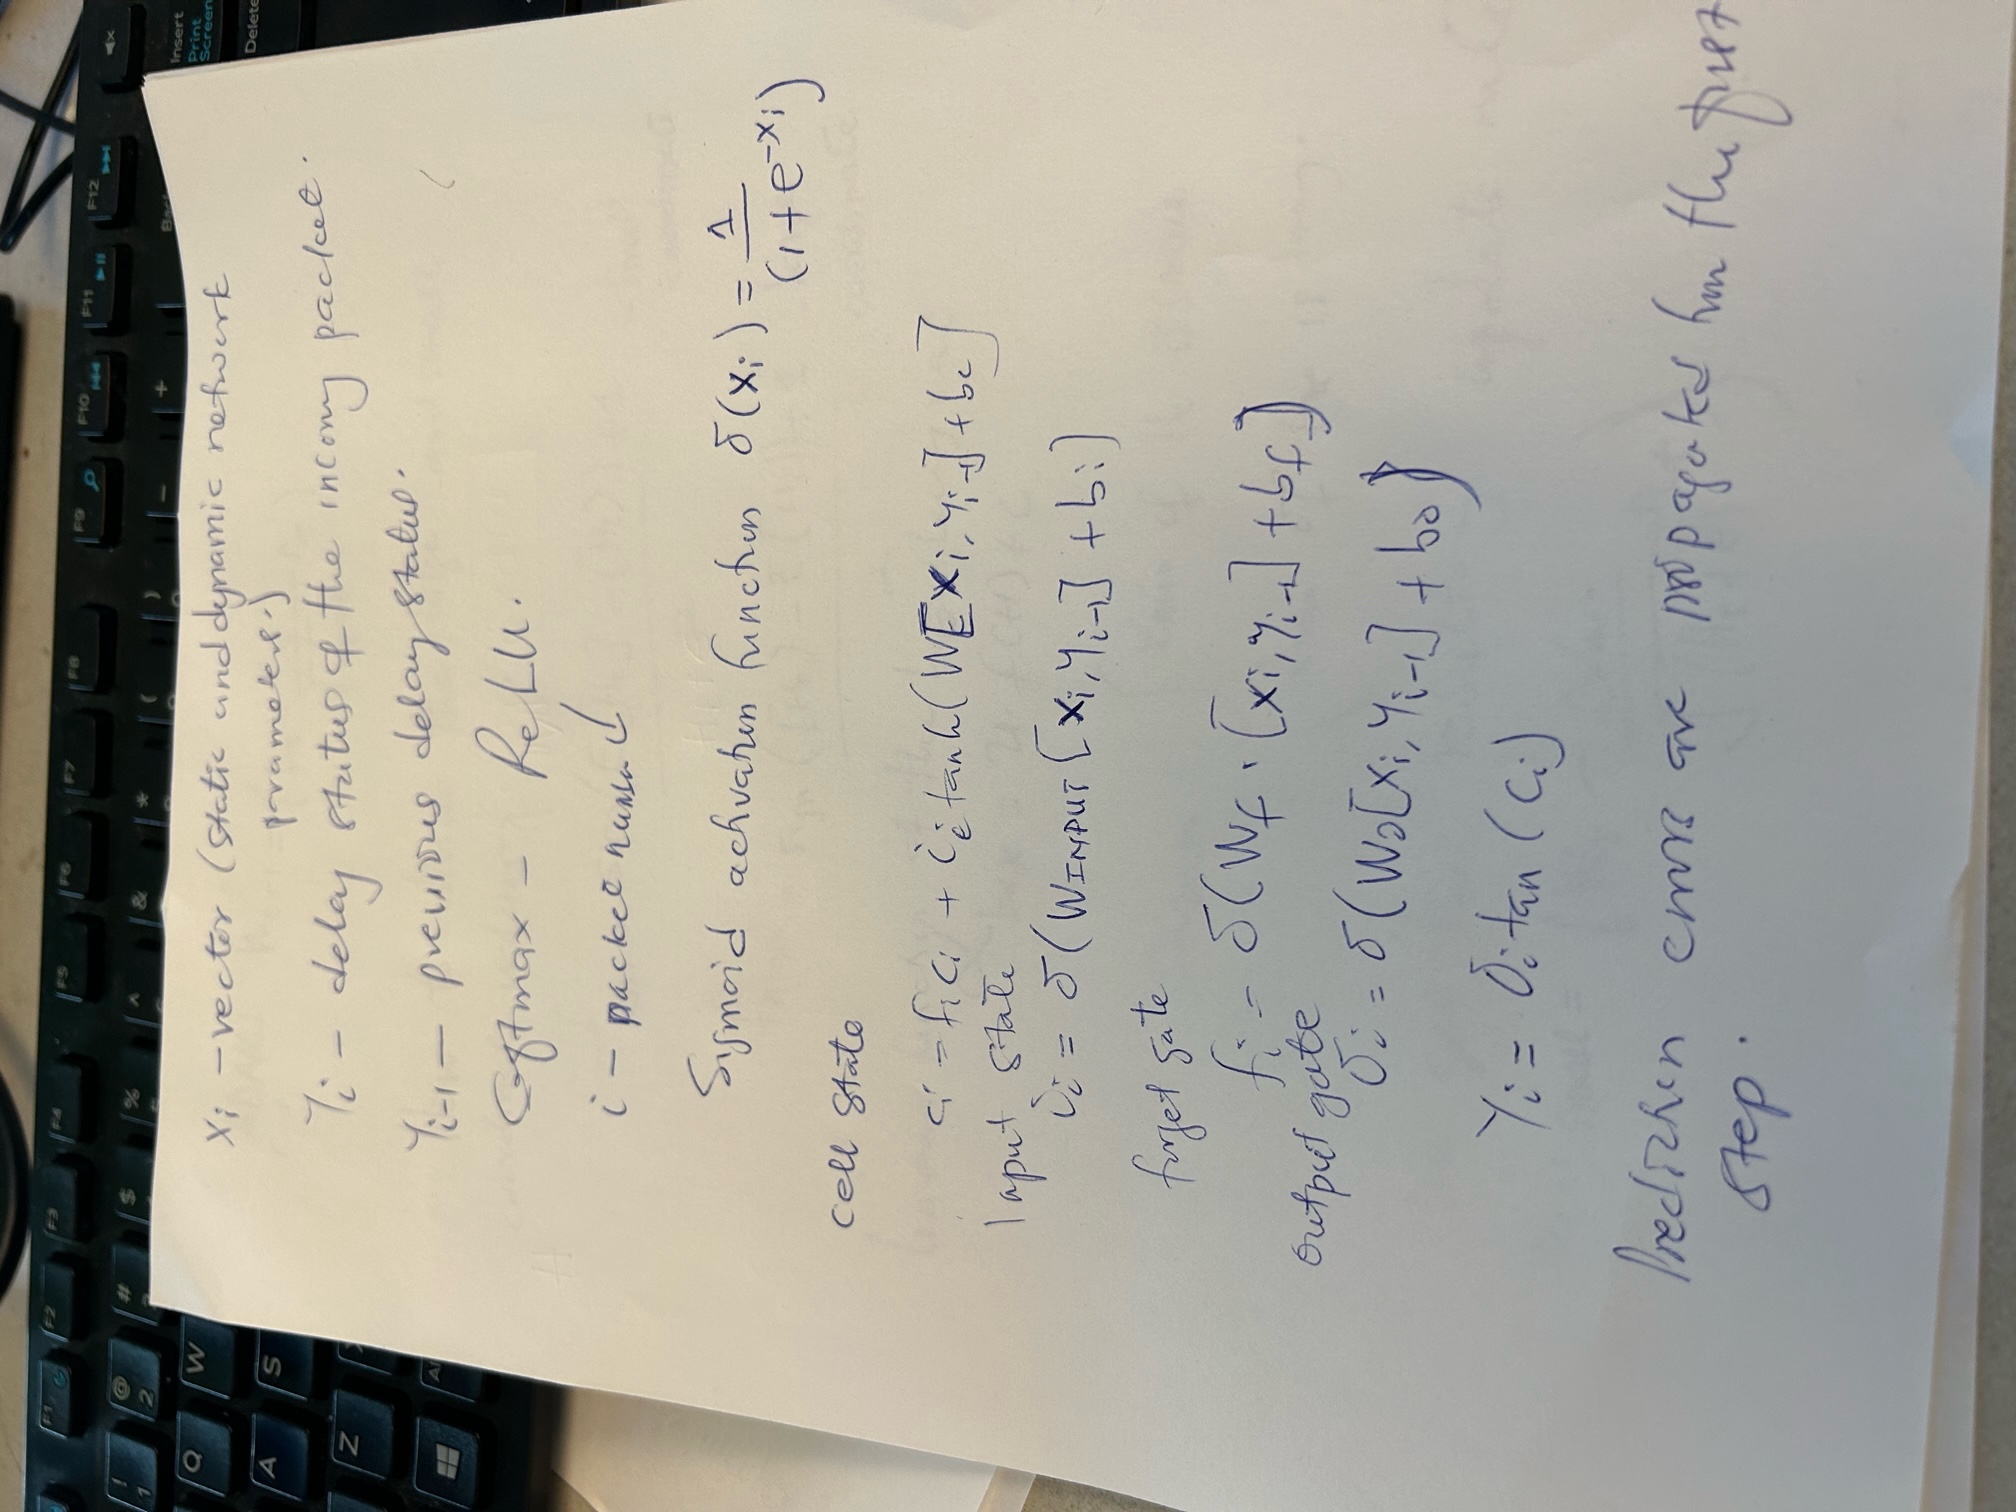 F1 F2 F3 F4 F5 F6 F7 F8 F9 F10 F11 F12
! @ # $ % ^ & * ( ) _ +
1 2
Insert
Print
Screen
Delete
Q W
A S
Z
xi – vector (static and dynamic network
parameters.)
Yi – delay status of the incomy packet.
Yi-1 – previous delay status.
Softmax – ReLU.
i – packet
Sigmoid activation function δ(xi) = 1/(1+e^-xi)
cell state
ci = fi ci + ii tanh(WC[xi, yi-1] + bc]
Input state
ii = δ(WINPUT [xi, yi-1] + bi)
forget gate
fi = δ(Wf · [xi, yi-1] + bf)
output gate
oi = δ(Wo[xi, yi-1] + bo)
Yi = oi tan (ci)
Prediction errors are propagated from the first
step.